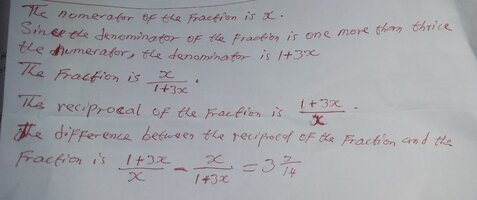 The numerator of the fraction is x.
Since the denominator of the fraction is one more than thrice
the numerator, the denominator is 1+3x
The fraction is x/(1+3x).
The reciprocal of the fraction is (1+3x)/x.
The difference between the reciprocal of the fraction and the
fraction is (1+3x)/x - x/(1+3x) = 3 2/14